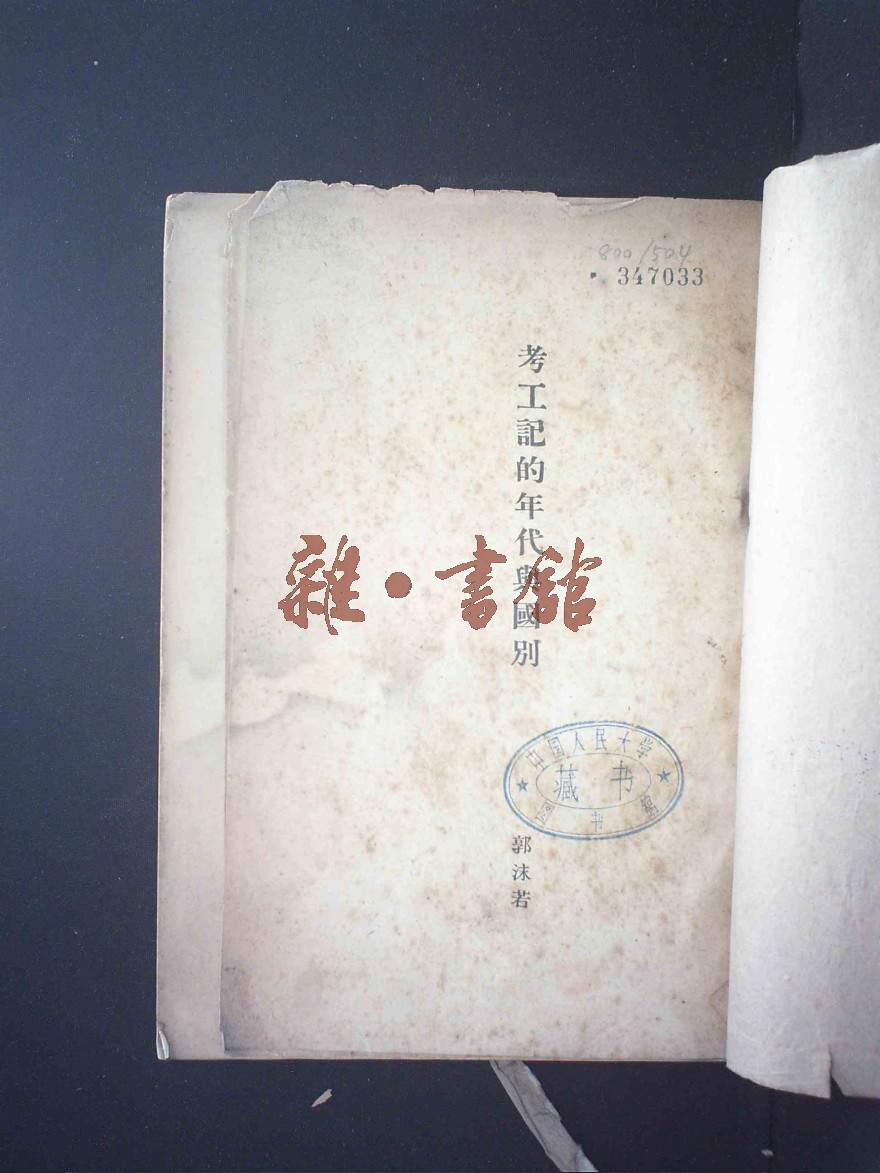 800/504
347033
考工記的年代與國別
雜·書館
中国人民大学
藏书
图书馆
郭沫若